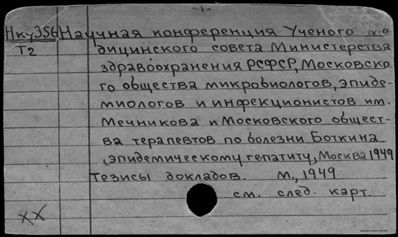 -1-
Нку356 Научная конференция Ученого ме
Т2 дицинского совета Министерства
здравоохранения РСФСР, Московско
го общества микробиологов, эпиде-
миологов и инфекционистов им.
Мечникова и Московского общест-
ва терапевтов по болезни Боткина
,эпидемическому гепатиту, Москва 1949
Тезисы докладов. М., 1949
см. след. карт.
хх